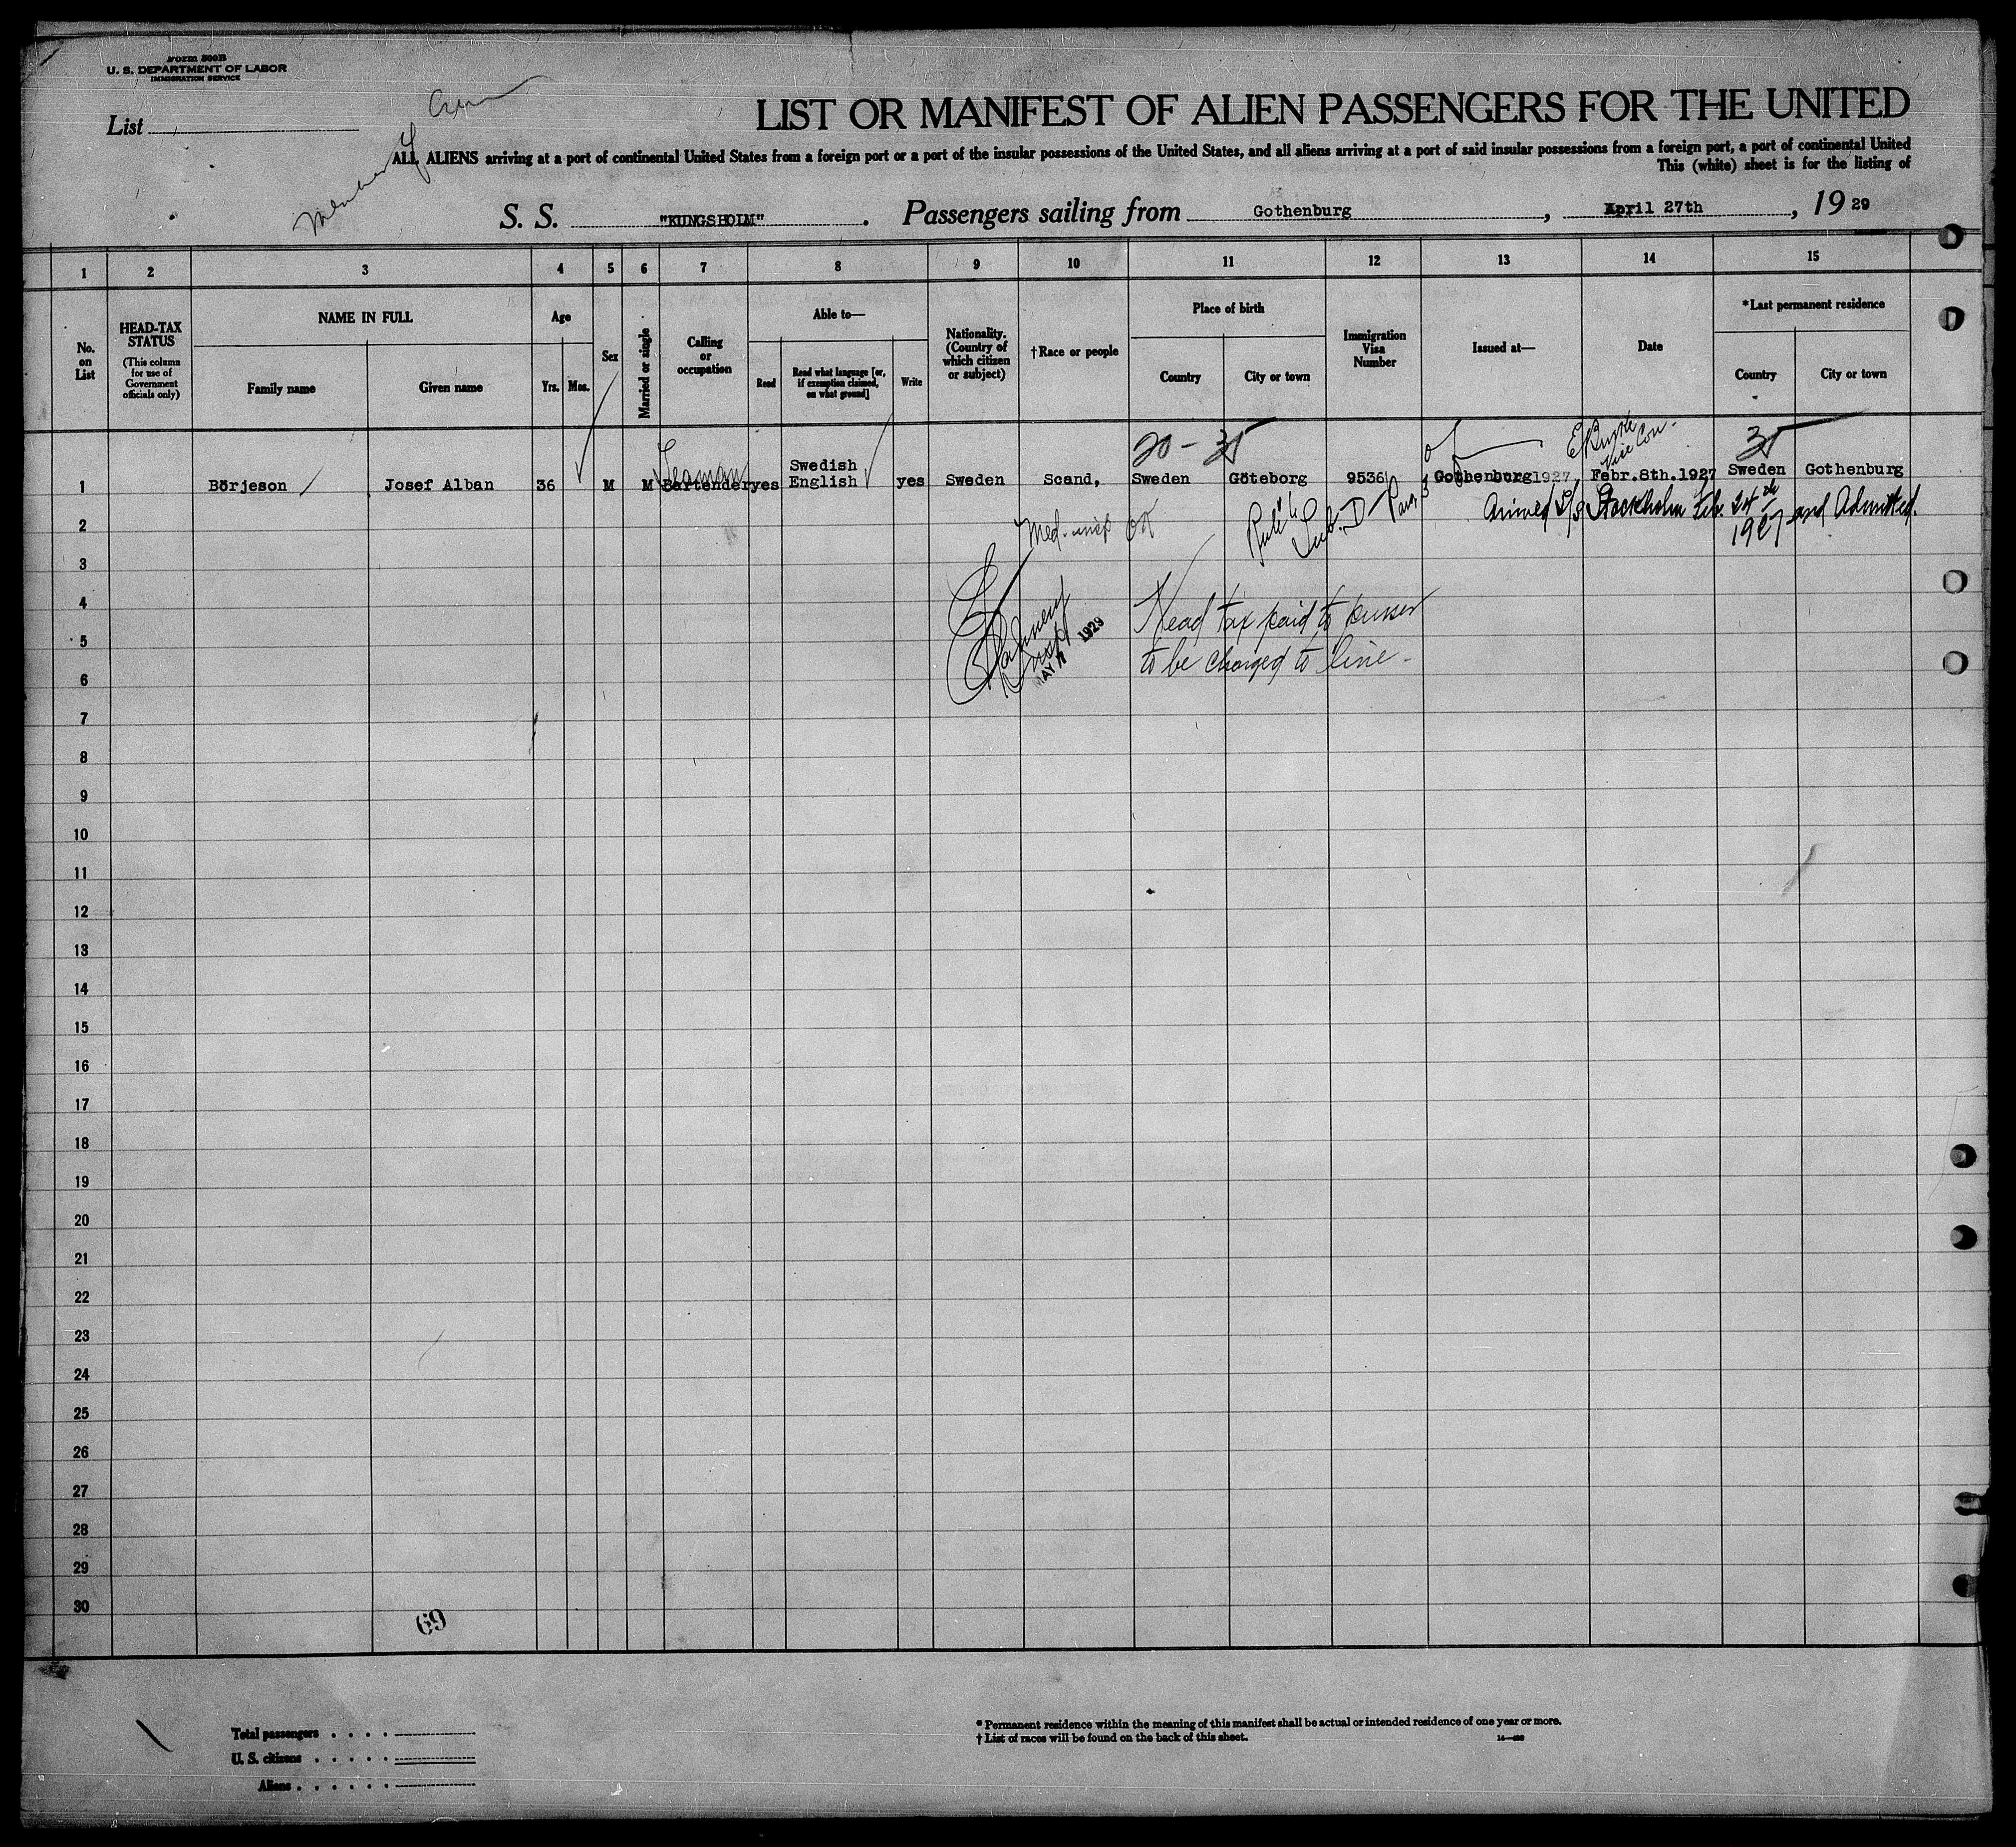 Form 500B
U. S. DEPARTMENT OF LABOR
IMMIGRATION SERVICE
List
Member of Crew
LIST OR MANIFEST OF ALIEN PASSENGERS FOR THE UNITED
ALL ALIENS arriving at a port of continental United States from a foreign port or a port of the insular possessions of the United States, and all aliens arriving at a port of said insular possessions from a foreign port, a port of continental United
This (white) sheet is for the listing of
S. S. "KUNGSHOLM". Passengers sailing from Gothenburg, April 27th, 1929
1 2 3 4 5 6 7 8 9 10 11 12 13 14 15
No. on List
HEAD-TAX STATUS
(This column for use of Government officials only)
NAME IN FULL
Family name
Given name
Age
Yrs. Mos.
Sex
Married or single
Calling or occupation
Able to—
Read
Read what language [or, if exemption claimed, on what ground]
Write
Nationality. (Country of which citizen or subject)
†Race or people
Place of birth
Country
City or town
Immigration Visa Number
Issued at—
Date
*Last permanent residence
Country
City or town
20 - 35
E Burke
Vice Con.
35
Seaman
1 Börjeson Josef Alban 36 M M Bartender yes Swedish English yes Sweden Scand, Sweden Göteborg 9536 Gothenburg 1927 Febr.8th.1927 Sweden Gothenburg
Arrived S/S Stockholm Feb. 24th 1927 and Admitted.
Med. insp OK
Rule 6 Sub. D Par. 3
2
3
4
5
6
MAY 1929
Head tax paid to purser
to be charged to line -
7
8
9
10
11
12
13
14
15
16
17
18
19
20
21
22
23
24
25
26
27
28
29
30
69
Total passengers
U. S. citizens
Aliens
* Permanent residence within the meaning of this manifest shall be actual or intended residence of one year or more.
† List of races will be found on the back of this sheet.